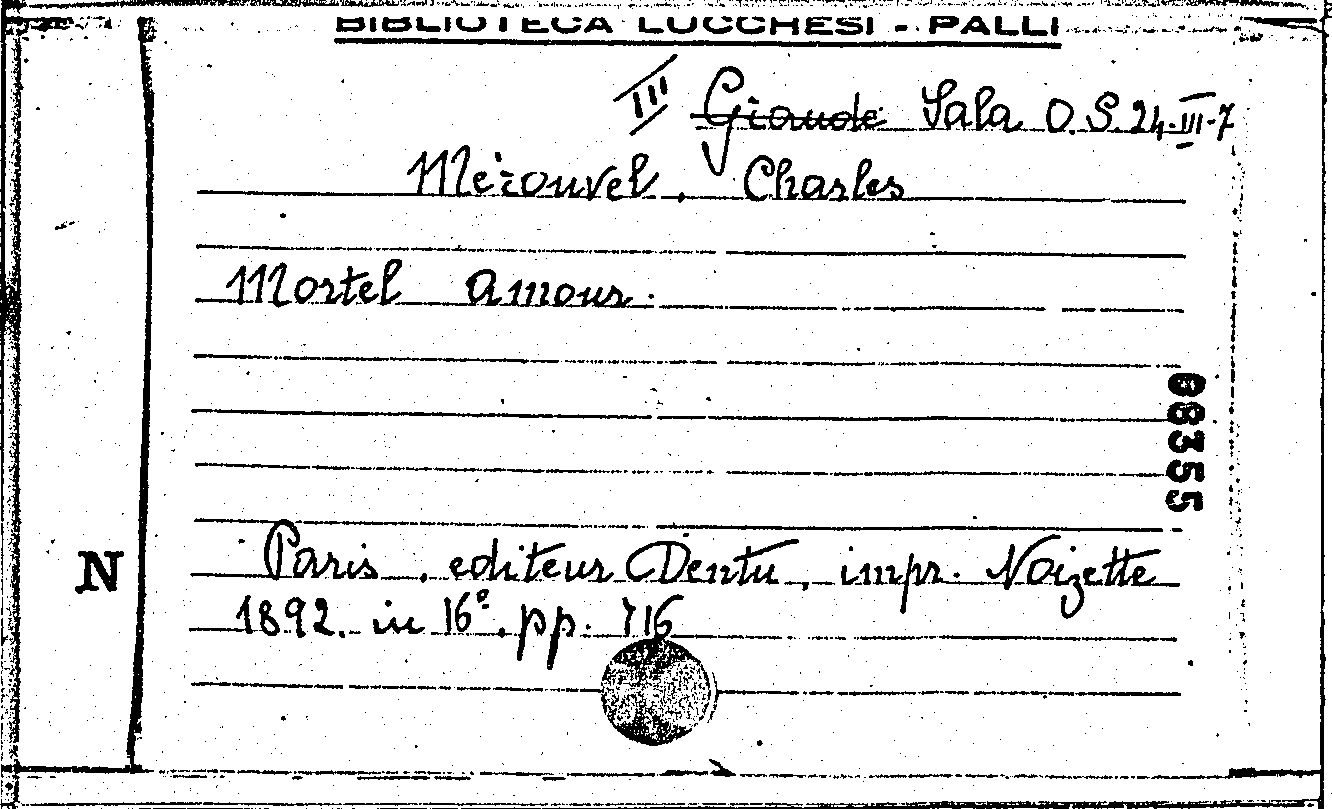 BIBLIOTECA LUCCHESI - PALLI
III Grande Sala O.S. 24.III.7
Mérouvel, Charles
Mortel Amour.
08355
N
Paris, editeur Dentu, impr. Noizette
1892. in 16° pp. 716